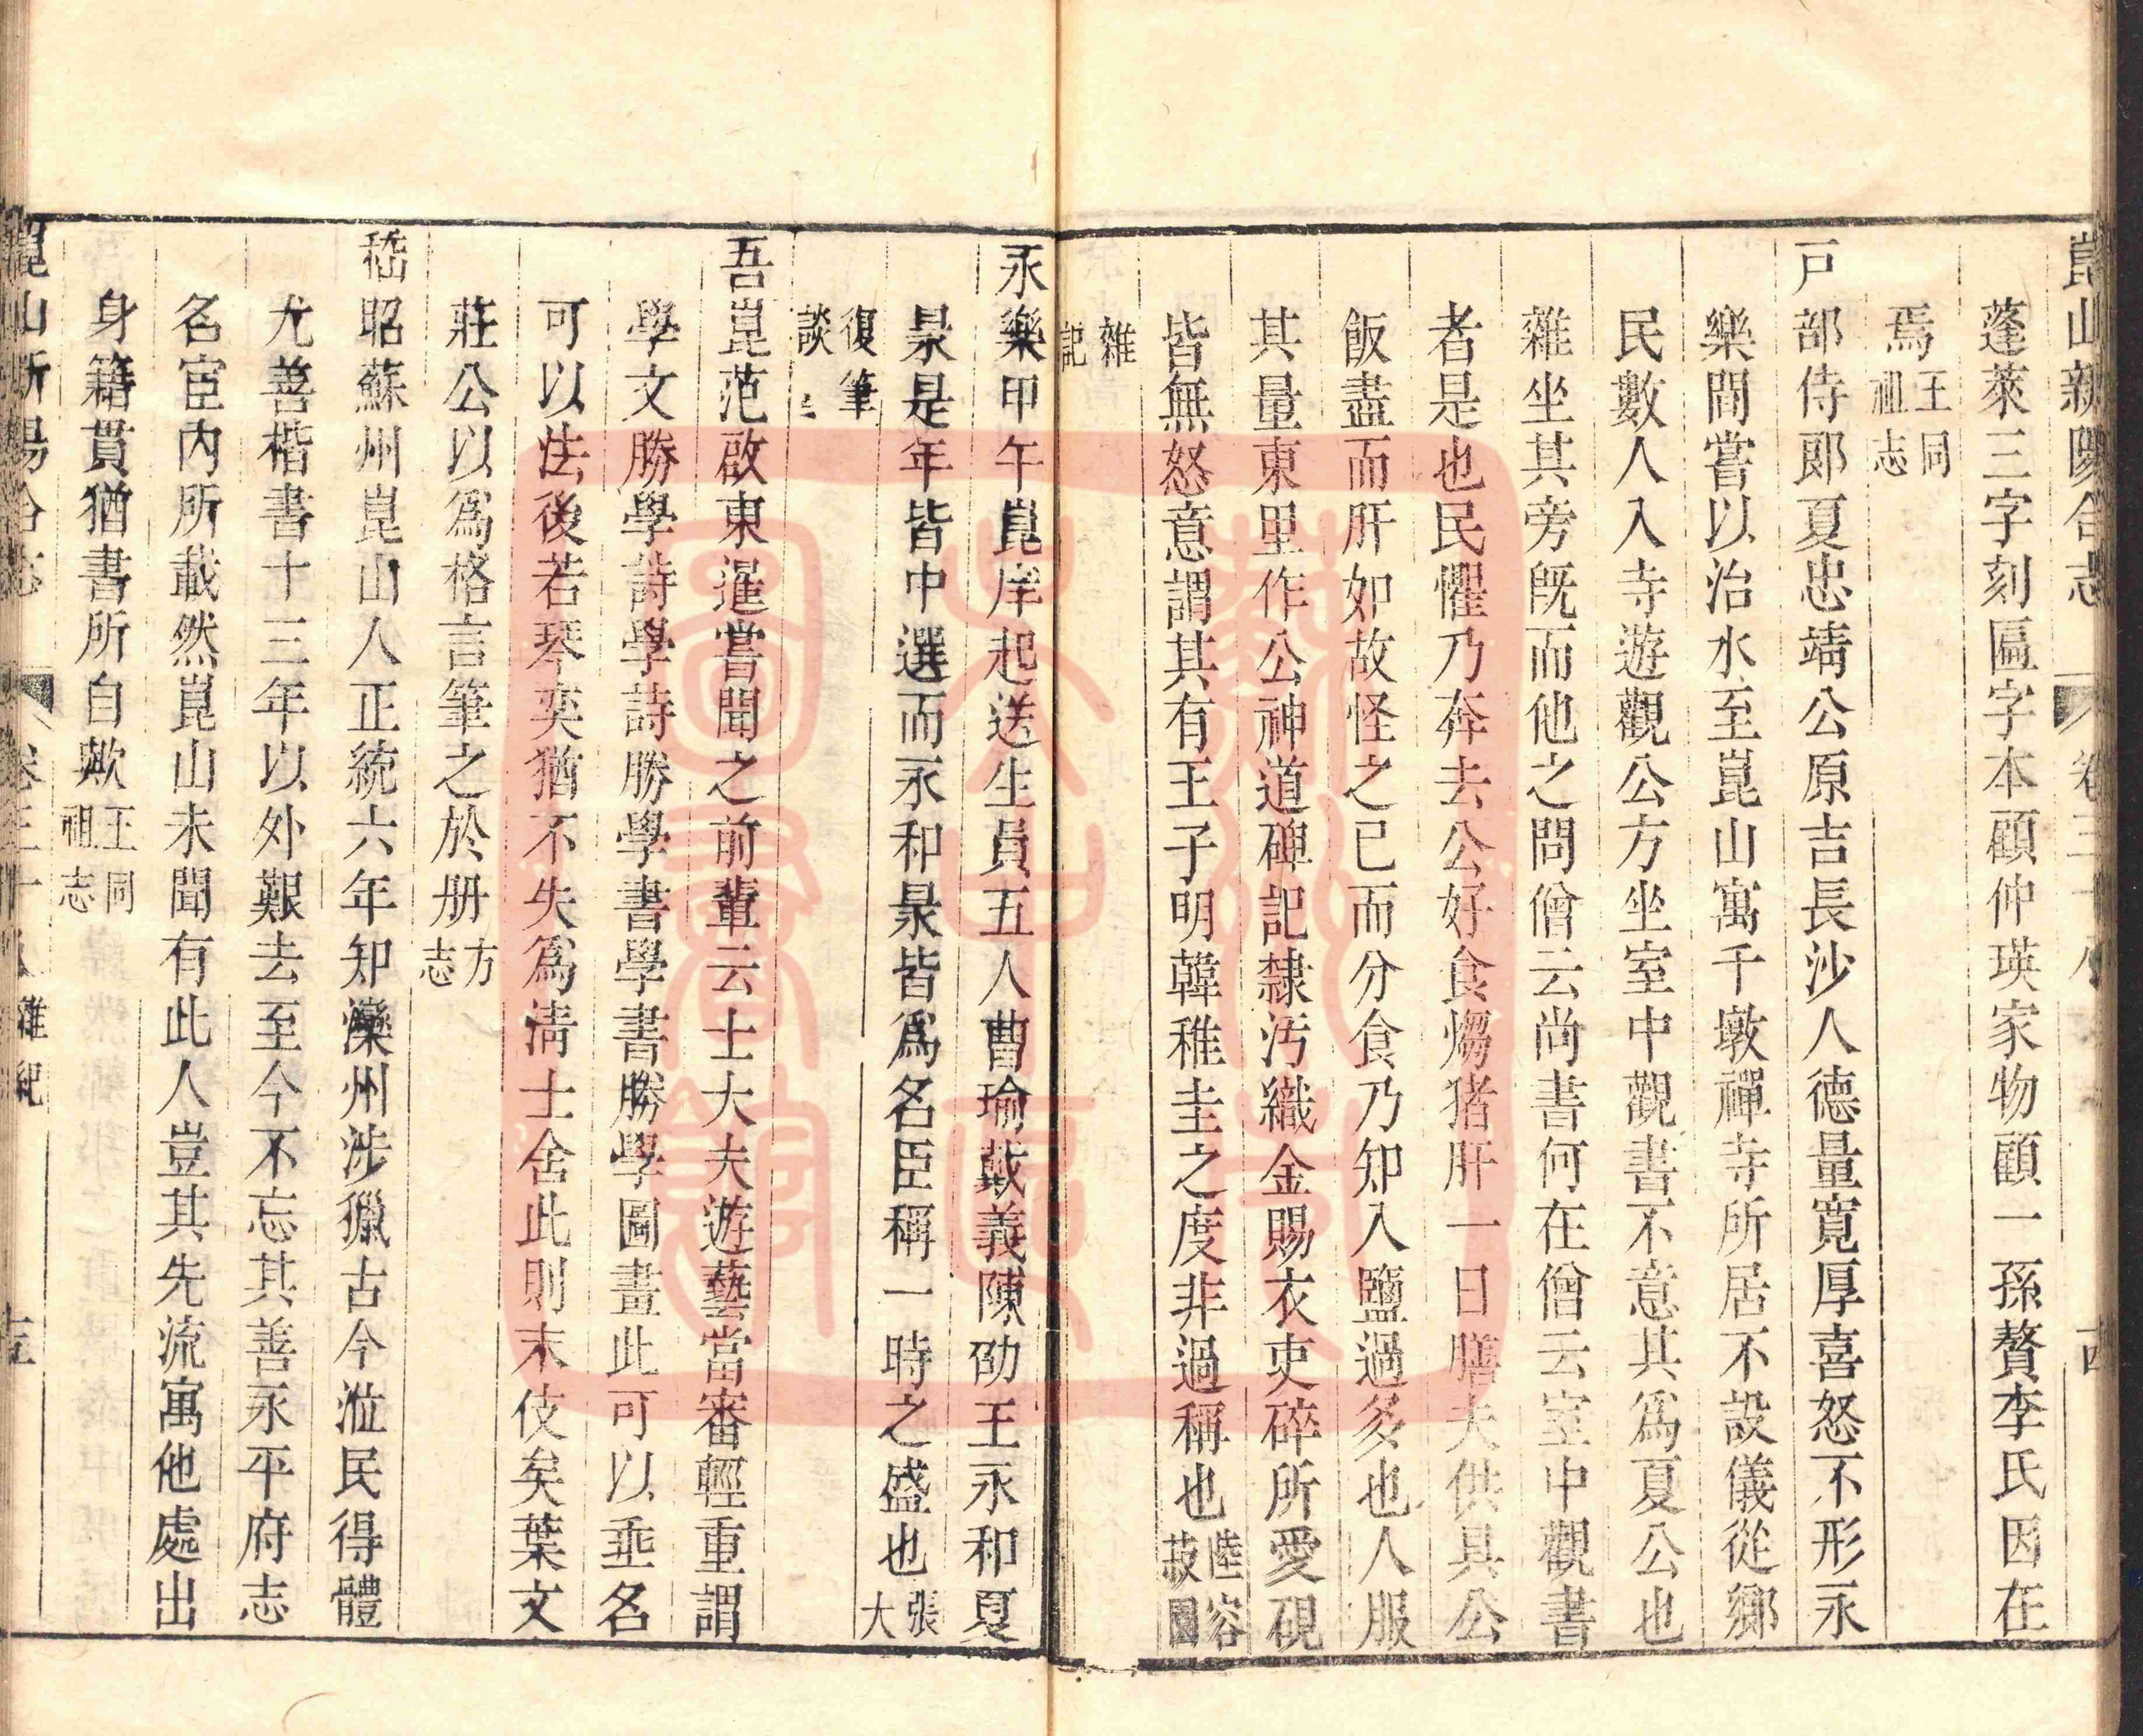 崑山新陽合志 卷三十八 十四
蓬萊三字刻匾字本顧仲瑛家物顧一孫贅李氏因在
焉王同祖志
戸部侍郎夏忠靖公原吉長沙人德量寛厚喜怒不形永
樂間嘗以治水至崑山寓千墩禪寺所居不設儀從鄉
民數人入寺遊觀公方坐室中觀書不意其爲夏公也
雜坐其旁旣而他之問僧云尚書何在僧云室中觀書
者是也民懼乃奔去公好食煼猪肝一日膳夫供具公
飯盡而肝如故怪之已而分食乃知入鹽過多也人服
其量東里作公神道碑記隸汚織金賜衣吏碎所愛硯
皆無怒意謂其有王子明韓稚圭之度非過稱也陸容菽園
雜記
永樂甲午崑庠起送生員五人曹瑜戴義陳劭王永和夏
㫤是年皆中選而永和㫤皆爲名臣稱一時之盛也張大
復筆談
吾崑范啟東暹嘗聞之前輩云士大夫遊藝當審輕重謂
學文勝學詩學詩勝學書學書勝學圖畫此可以垂名
可以法後若琴奕猶不失爲淸士舍此則末伎矣葉文
莊公以爲格言筆之於册方志
嵇昭蘇州崑山人正統六年知灤州涉獵古今涖民得體
尤善楷書十三年以外艱去至今不忘其善永平府志
名宦内所載然崑山未聞有此人豈其先流寓他處出
身籍貫猶書所自歟王同祖志
崑山新陽合志 卷三十八 雜紀 十五